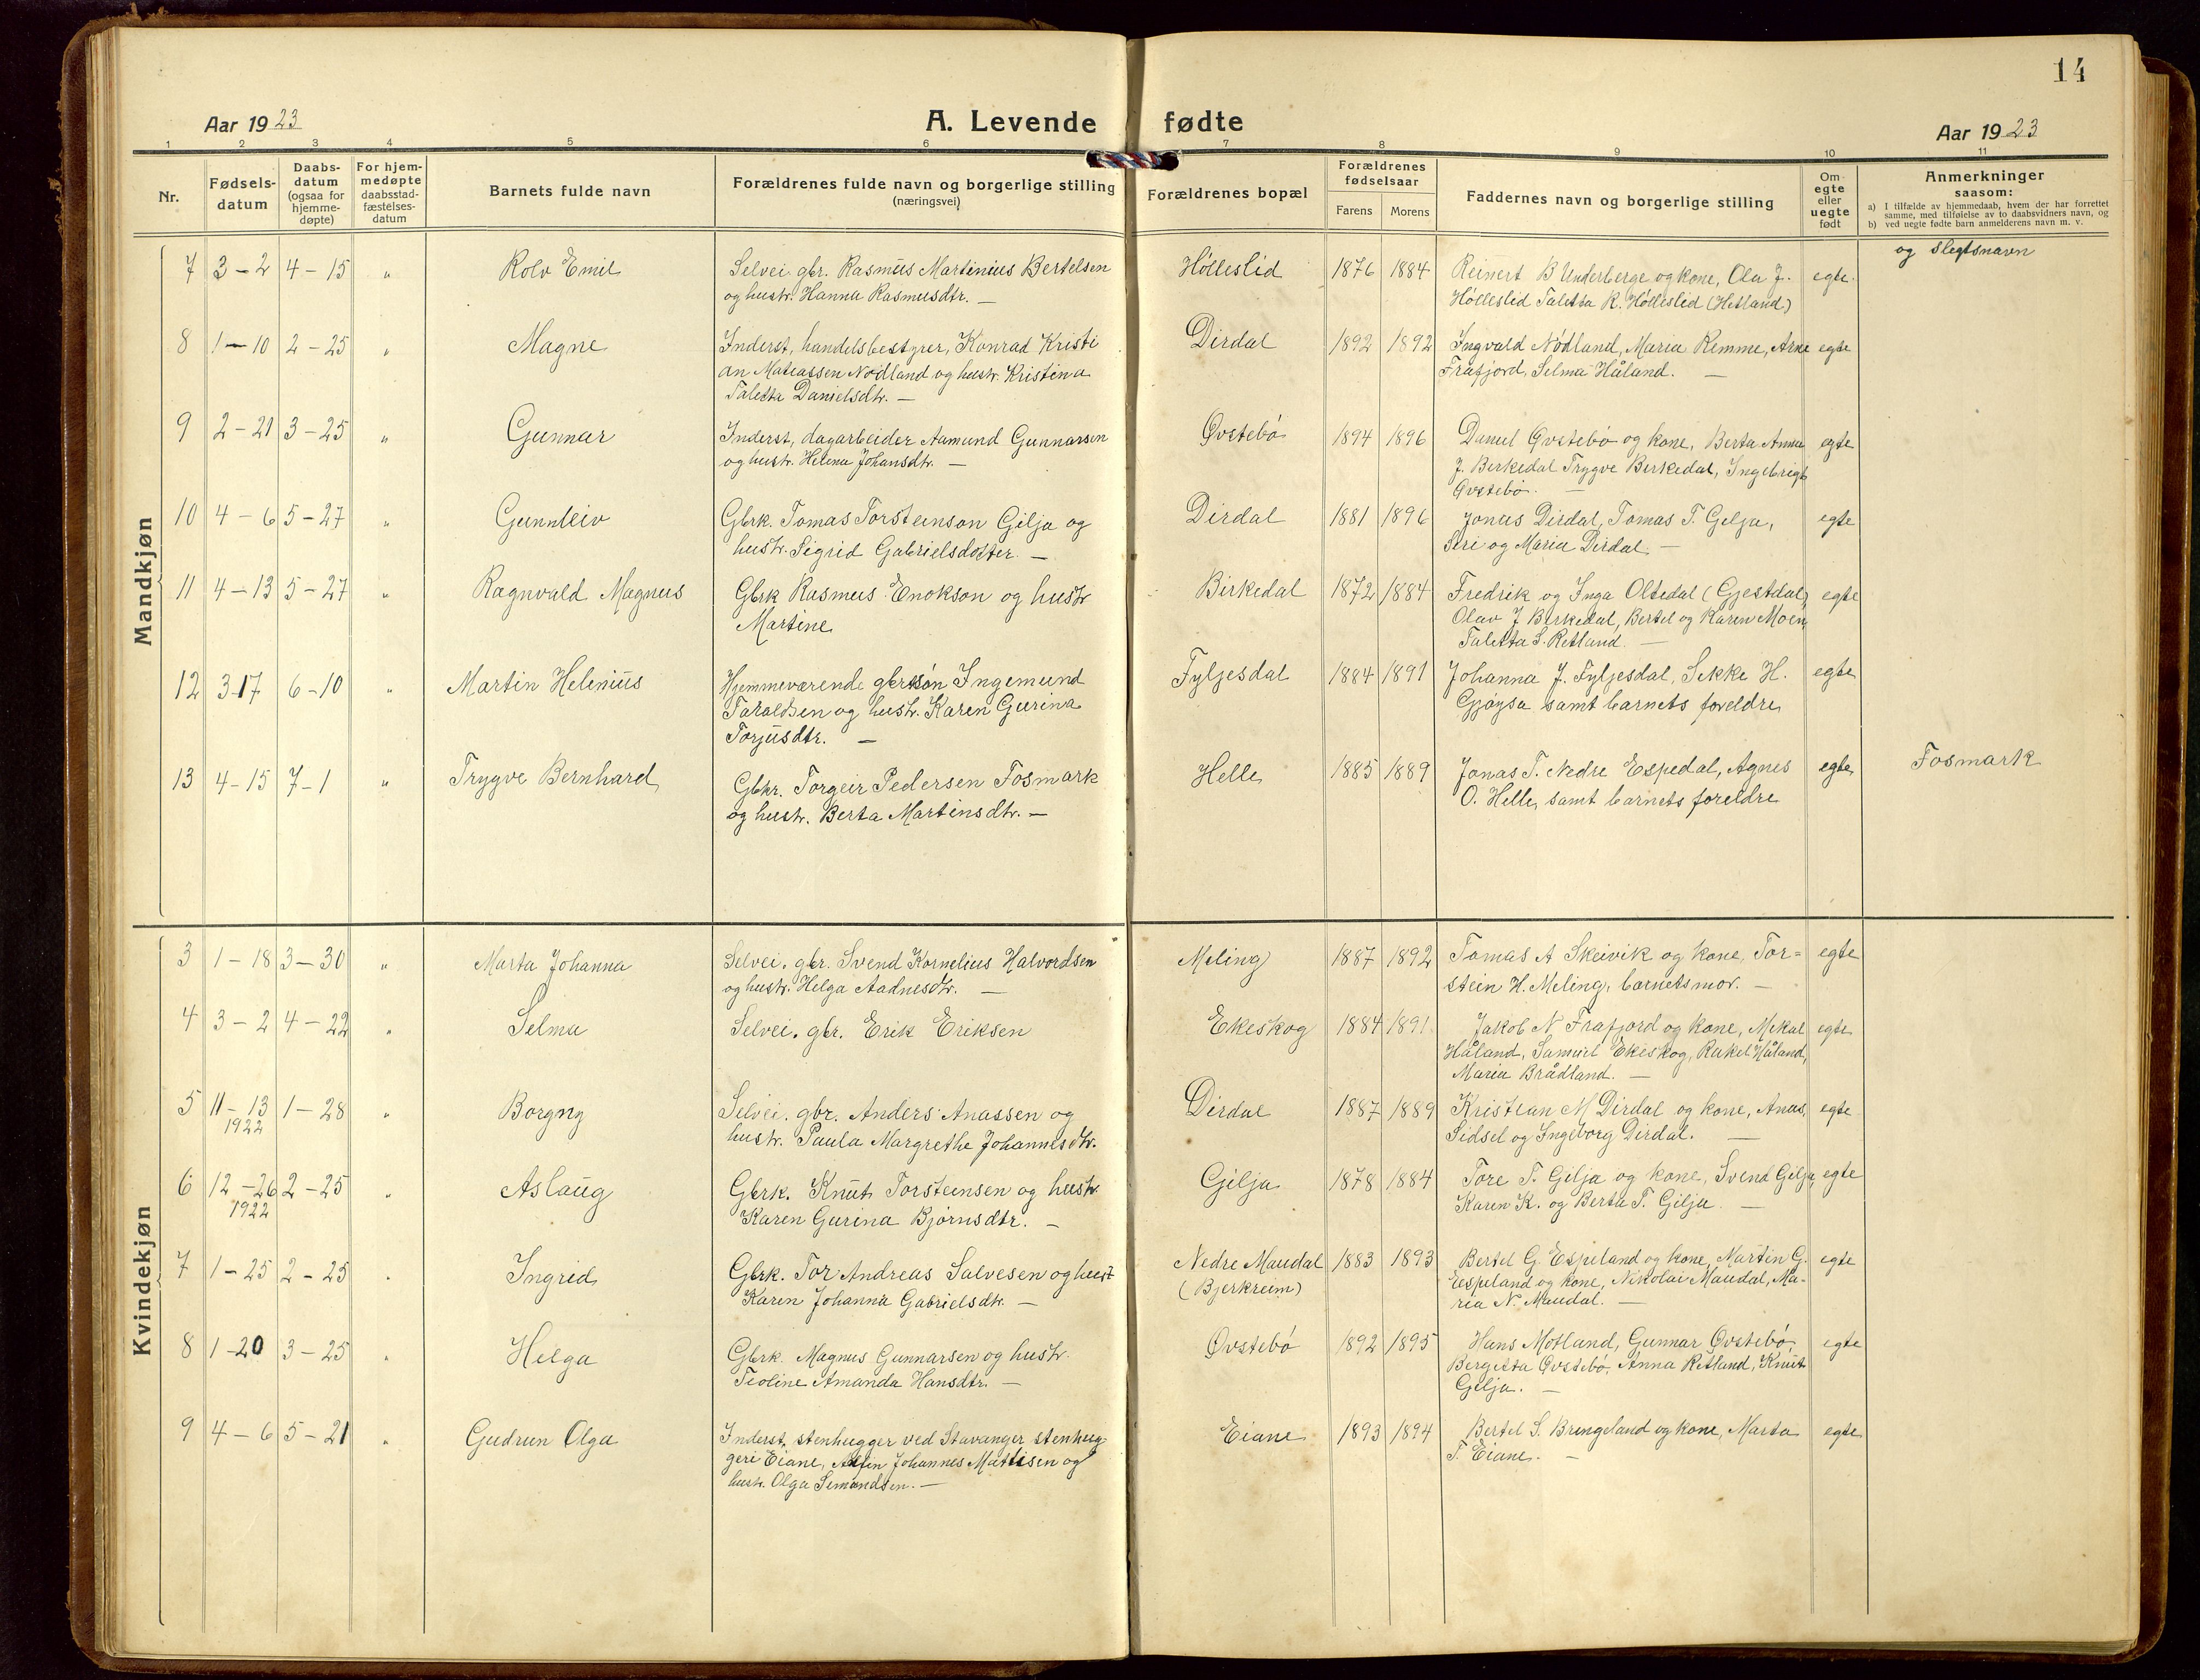 14
Aar 1923
A. Levende fødte
Aar 1923
1 2 3 4 5 6 7 8 9 10 11
Nr.
Fødsels-
datum
Daabs-
datum
(ogsaa for
hjemme-
døpte)
For hjem-
medøpte
daabsstad-
fæstelses-
datum
Barnets fulde navn
Forældrenes fulde navn og borgerlige stilling
(næringsvei)
Forældrenes bopæl
Forældrenes
fødselsaar
Farens Morens
Faddernes navn og borgerlige stilling
Om
egte
eller
uegte
født
Anmerkninger
saasom:
a) I tilfælde av hjemmedaab, hvem der har forrettet
samme, med tilføielse av to daabsvidners navn, og
b) ved uegte fødte barn anmelderens navn m. v.
og slegtsnavn
Mandkjøn
7 3-2 4-15 " Rolv Emil Selvei. gbr. Rasmus Martinius Bertelsen Hølleslid 1876 1884 Reinert B Underberge og kone, Ola J. egte.
og hustr. Hanna Rasmusdtr. — Hølleslid Taletta R. Hølleslid (Hetland)
8 1-10 2-25 " Magne Inderst, handelsbestyrer, Konrad Kristi Dirdal 1892 1892 Ingvald Nødland, Maria Remme, Arne egte
an Matiassen Nødland og hustr. Kristina Frafjord, Selma Håland. —
Taletta Danielsdtr. —
9 2-21 3-25 " Gunnar Inderst, dagarbeider Aamund Gunnarsen Øvstebø 1894 1896 Daniel Øvstebø og kone, Berta Anna egte
og hustr. Helena Johansdtr. — J. Birkedal Trygve Birkedal, Ingebrigt
Øvstebø. —
10 4-6 5-27 " Gunnleiv Gbrk. Tomas Torsteinson Gilja og Dirdal 1881 1896 Jonas Dirdal, Tomas T. Gilja, egte
hustr. Sigrid Gabrielsdotter. — Siri og Maria Dirdal. —
11 4-13 5-27 " Ragnvald Magnus Gbrk Rasmus Enokson og hustr Birkedal 1872 1884 Fredrik og Inga Oltedal (Gjestdal) egte
Martine Olav J Birkedal, Bertel og Karen Moen,
Taletta S. Retland. —
12 3-17 6-10 " Martin Helenius Hjemmeværende gbrksøn Ingemund Fyljesdal 1884 1891 Johanna J. Fyljesdal, Sikke H. egte
Taraldsen og hustr. Karen Gurina Gjøysa samt barnets foreldre
Torjusdtr. —
13 4-15 7-1 " Trygve Bernhard Gbkr. Torgeir Pedersen Fosmark Helle 1885 1889 Jonas T. Nedre Espedal, Agnes egte Fosmark
og hustr. Berta Martinsdtr. — O. Helle, samt barnets foreldre
Kvindekjøn
3 1-18 3-30 " Marta Johanna Selvei. gbr. Svend Kornelius Halvordsen Meling 1887 1892 Tomas A Skeivik og kone, Tor= egte
og hustr. Helga Aadnesdtr. — stein H. Meling, barnets mor. —
4 3-2 4-22 " Selma Selvei. gbr. Erik Eriksen Ekeskog 1884 1891. Jakob N Frafjord og kone, Mikal egte
Håland, Samuel Ekeskog, Rakel Håland,
Maria Brådland. —
5 11-13 1-28 " Borgny Selvei. gbr. Anders Anassen og Dirdal 1887 1889 Kristian M Dirdal og kone, Anas, egte
1922 hustr. Paula Margrethe Johannesdtr. Sidsel og Ingeborg Dirdal. —
6 12-26 2-25 " Aslaug Gbrk. Knut Torsteinsen og hustr Gilja 1878 1884 Tore T. Gilja og kone, Svend Gilja, egte
1922 Karen Gurina Bjørnsdtr. — Karen K. og Berta T. Gilja. —
7 1-25 2-25 " Ingrid Gbrk. Tor Andreas Salvesen og hust Nedre Maudal 1883 1893 Bertel G. Espeland og kone, Martin G. egte
Karen Johanna Gabrielsdtr. — (Bjerkreim) Espeland og kone, Nikolai Maudal, Ma-
ria N. Maudal. —
8 1-20 3-25 " Helga Gbrk. Magnus Gunnarsen og hustr. Øvstebø 1892 1895 Hans Motland, Gunnar Øvstebø, egte
Teoline Amanda Hansdtr. — Bergitta Øvstebø, Anna Retland, Knut
Gilja. —
9 4-6 5-21 " Gudrun Olga Inderst, stenhugger ved Stavanger stenhug- Eiane 1893 1894 Bertel S. Bringeland og kone, Marta egte
geri Eiane, Johannes Mattisen og T. Eiane. —
hustr. Olga Simondsen. —